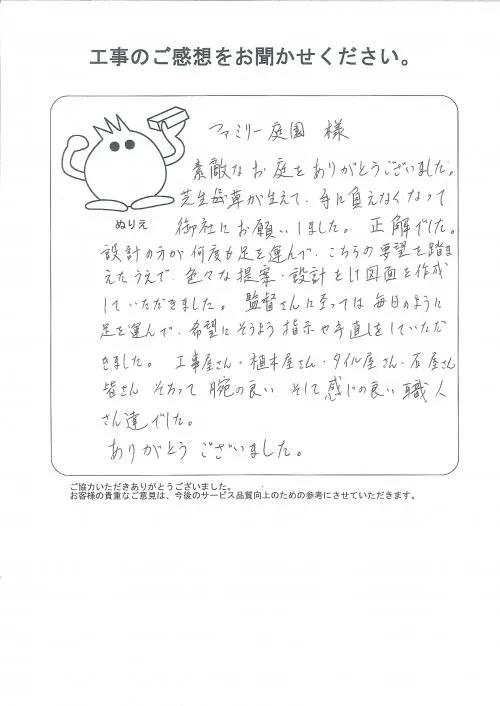 工事のご感想をお聞かせください。
ファミリー庭園 様
素敵なお庭をありがとうございました。
芝生に草が生えて、手に負えなくなって
ぬりえ
御社にお願いしました。 正解でした。
設計の方が何度も足を運んで、こちらの要望を踏ま
えたうえで、色々な提案・設計をし図面を作成
していただきました。 監督さんに至っては毎日のように
足を運んで、希望にそうよう指示や手直しをしていただ
きました。 工事屋さん・植木屋さん・タイル屋さん・石屋さん
皆さん そろって 腕の良い そして感じの良い職人
さん達でした。
ありがとうございました。
ご協力いただきありがとうございました。
お客様の貴重なご意見は、今後のサービス品質向上のための参考にさせていただきます。